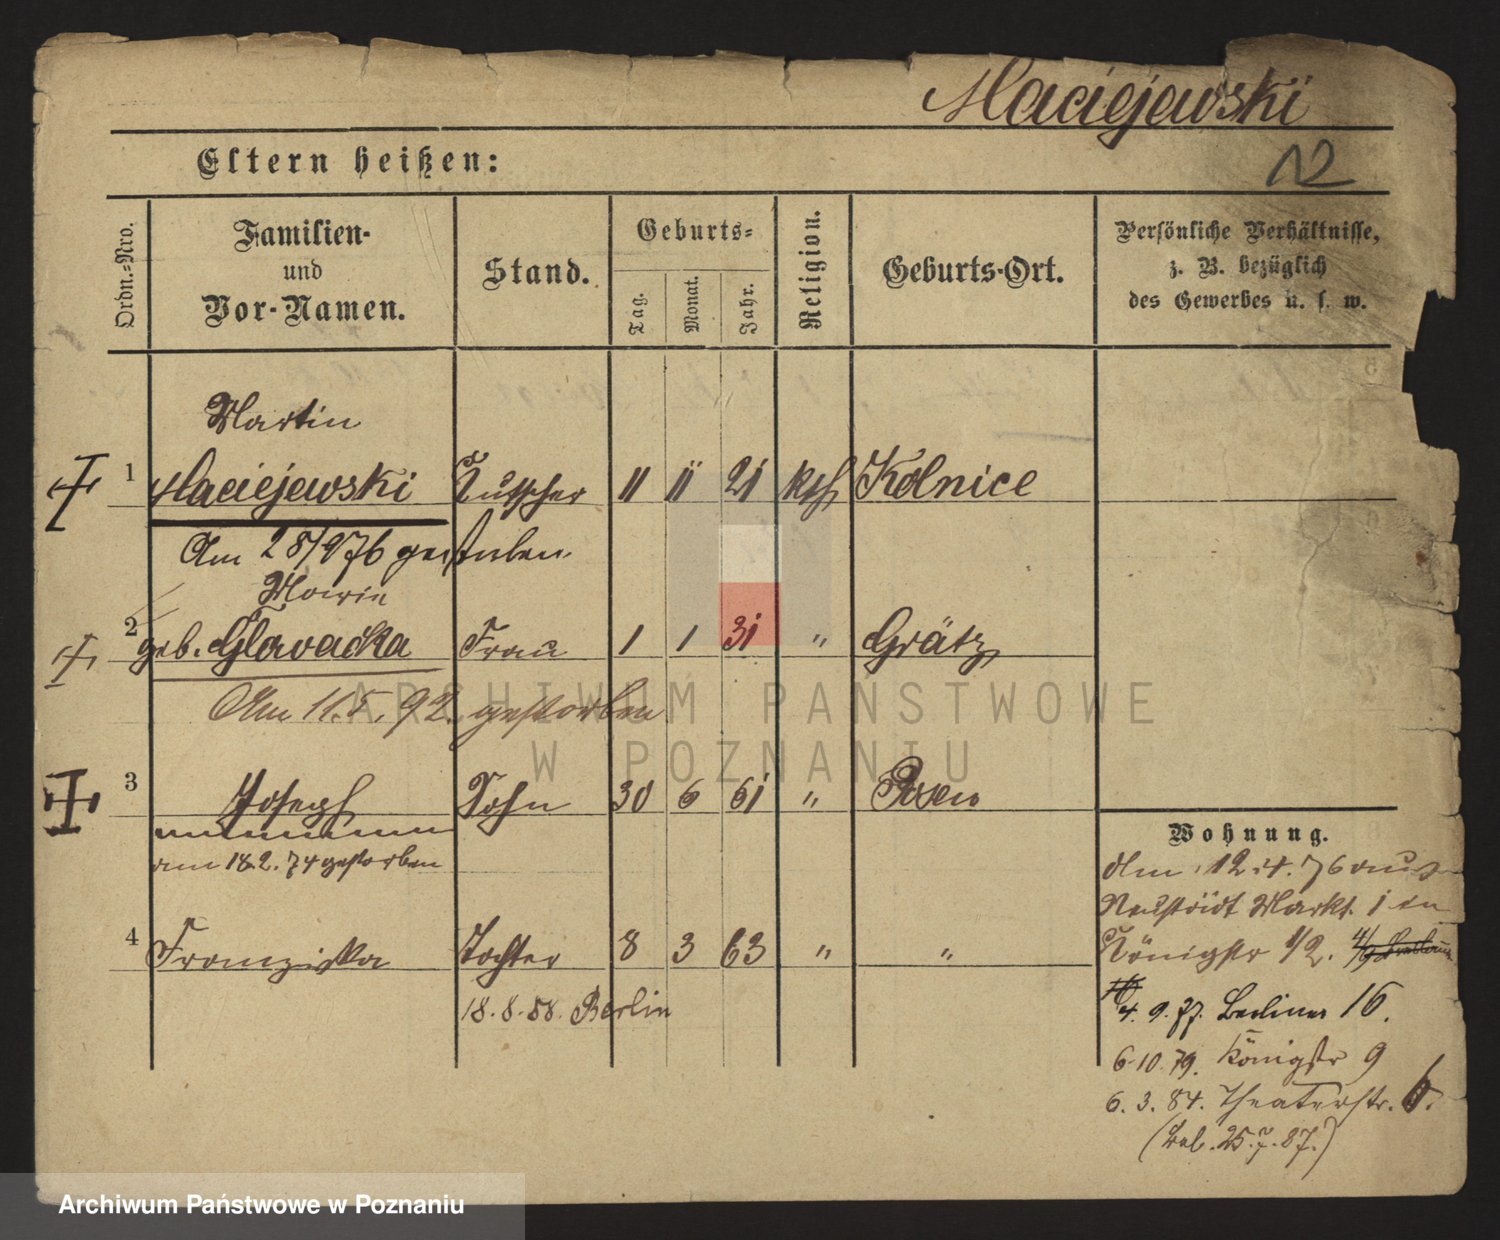 Maciejewski
Eltern heißen:
12
Ordn.-Nro.
Familien-
und
Vor-Namen.
Stand.
Geburts-
Tag.
Monat.
Jahr.
Religion.
Geburts-Ort.
Persönliche Verhältnisse,
z. B. bezüglich
des Gewerbes u. s. w.
Martin
1 Maciejewski Kutscher 11 11 21 kth Kolnice
Am 28/9 76 gestorben
Marie
2 geb. Glavacka Frau 1 1 31 " Grätz
Am 11.5.92. gestorben
3 Joseph Sohn 30 6 61 " Posen
am 18.2.74 gestorben
4 Franziska Tochter 8 3 63 " "
18.8.88. Berlin
Wohnung.
Am 12.4.76 aus
Neustädt Markt. 1 in
Königstr 1/2.
4.9.77. Berliner 16.
6.10.79. Königstr 9
6.3.84. Theaterstr. 6.
25.7.87.)
ARCHIWUM PAŃSTWOWE
W POZNANIU
Archiwum Państwowe w Poznaniu